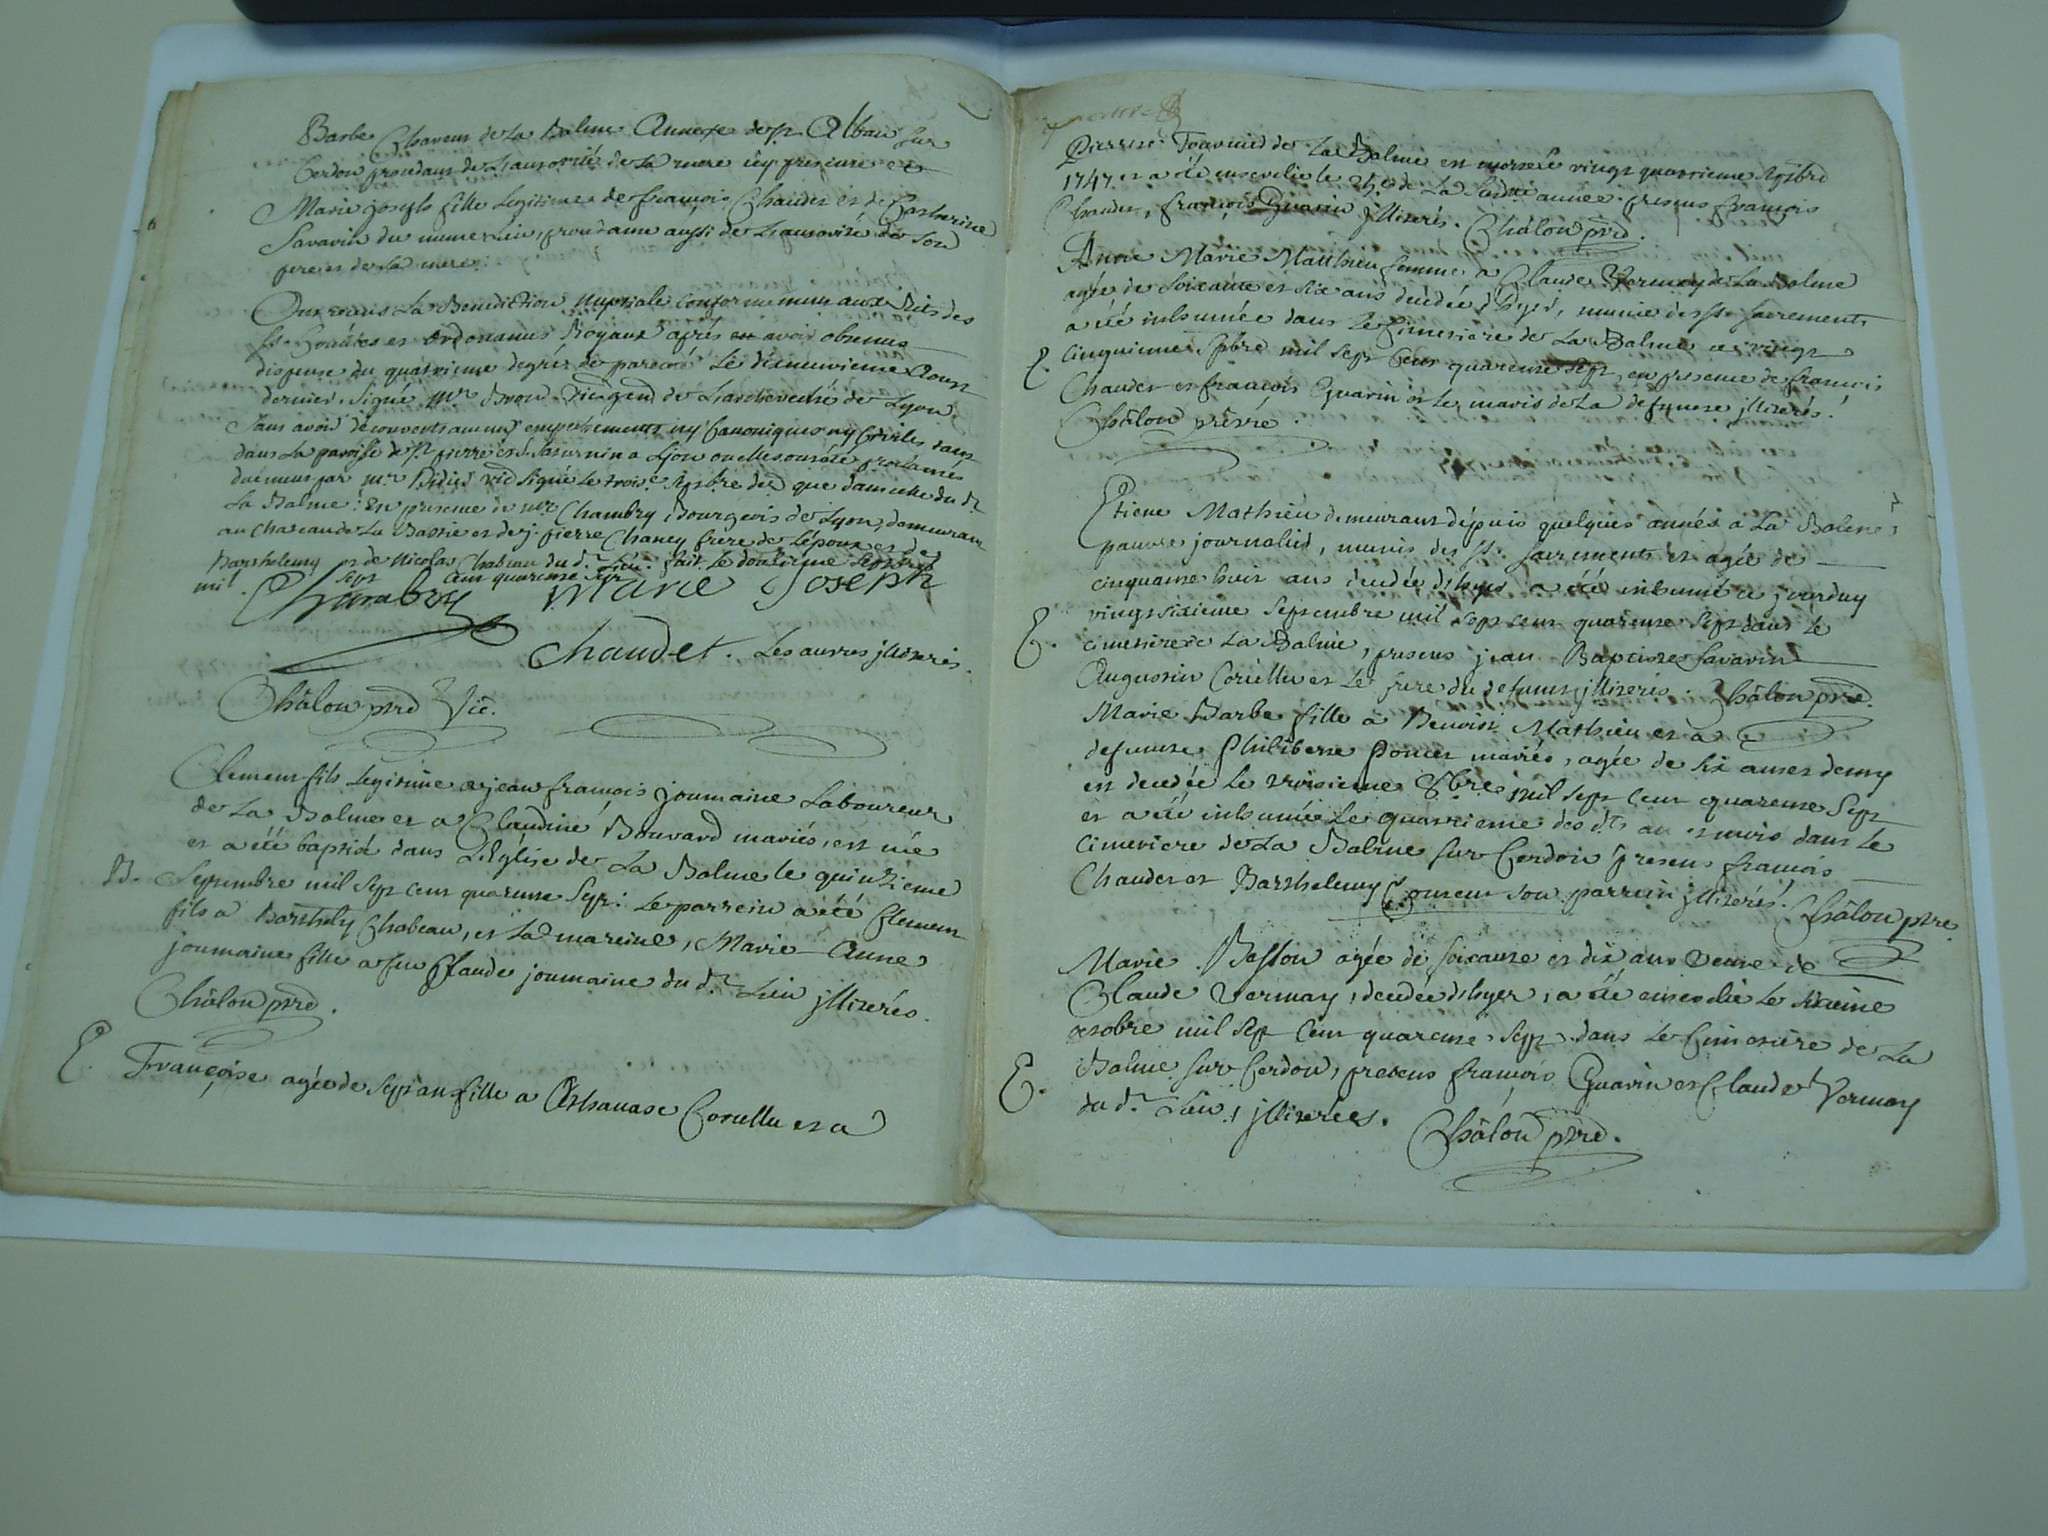 Barbe Chaveur de la Balme Annexe de St Alban sur
Cerdon procédant de l'authorité de la mere icy presente et
Marie joseph fille legitime de françois Chaudet et de Catherine
Savarin du meme lieu, procedante aussi de l'authorité de son
pere et de la mere.
Ont reçus La Benediction Nuptiale conformement aux Rits des
Sts et ordonnances Royaux après en avoir obtenus
dispense du quatrieme degrés de parenté Le dixneuvieme Aoust
dernier. Signé Mr Vic. gnd de L'archeveché de Lyon
Sans avoir découverts aucuns empechements ny Canoniques ny Civiles tant
dans La paroisse de St pierre et St Saturnin a Lyon ou elles ont été proclamés
duement par Mr Didier vic Signé le trois.e 7bre dud que dans celle dud
La Balme : En presence de Mr Chambry Bourgeois de Lyon, demeurant
au Chateau de La Bastie et de j. pierre Chaney frere de l'époux et de
Barthelemy et de Nicolas Chabeau du d. Lieu. fait le douzieme Septembre
mil sept cent quarente sept
Chambry Marie Joseph
Chaudet. Les autres illiterés.
Châlon ptre Vic.
Clement fils Legitime a jean françois joumaine Laboureur
de La Balme et a Claudine Bouvard mariés, est née
et a été baptisé dans L'Eglise de La Balme le quinzieme
B. Septembre mil sept cent quarente sept : Le parrein a été Clement
fils a Barthely Chabeau, et la mareine, Marie Anne
joumaine fille a feu Claude joumaine du d. Lieu illiterés.
Châlon ptre.
E. Françoise agée de sept ans fille a Athanase Corullu et a
Pierrete Tournier de La Balme est morte le vingt quatrieme 7bre
1747 et a été ensevelie le 25e de La Susd.te année. presens françois
Chaudet, françois Guarin illiterés. Châlon ptre.
Anne Marie Matthieu femme a Claude Vermay de La Balme
agée de soixante et six ans decédée d'hyer, munie des Sts Sacrements
a été inhumée dans le Cimetiere de La Balme ce vingt
E. Cinquieme 7bre mil sept Cent quarente sept, en presence de françois
Chaudet et françois Guarin et le maris de La defunte illiterés.
Châlon prêtre.
Etiene Mathieu demeurant dépuis quelques annés a La Balme,
pauvre journalier, munis des Sts Sacrements et agée de
cinquante huit ans decedée d'hyer a été inhumé ce jourduy
vingt sixieme Septembre mil sept cent quarente sept dans le
E. cimetiere de La Balme, presens jean Baptiste Savarin
Augustin Corullu et Le frere du defunt illiterés. Châlon ptre.
Marie Barbe fille a Benoist Mathieu et a
defunte Philiberte Poncet mariés, agée de six ans et demy
est decedée le troisieme 8bre mil sept cent quarente sept
et a été inhumée Le quatrieme des dts an et mois dans Le
Cimetiere de La Balme sur Cerdon presens françois
Chaudet et Barthelemy son parrein illiterés. Châlon ptre.
Marie Baston agée de soixante et dix ans veuve de
Claude Vermay, decedée d'hyer, a été ensevelie le sixieme
octobre mil sept cent quarente sept dans le Cimetiere de La
E. Balme sur Cerdon, presens françois Guarin et Claude Vermay
du d. Lieu, illiterées. Châlon ptre.